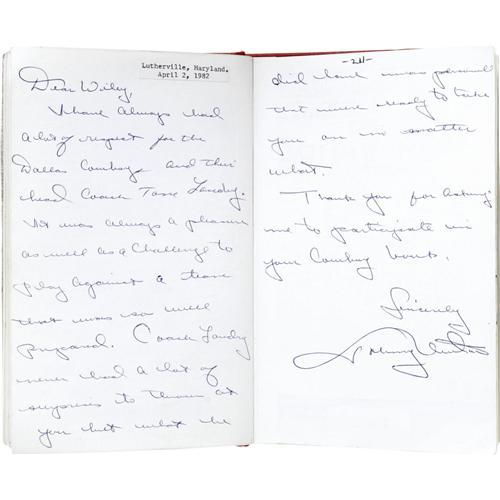 Lutherville, Maryland.
April 2, 1982
Dear Wiley,
I have always had
a lot of respect for the
Dallas Cowboys and their
head Coach Tom Landry.
It was always a pleasure
as well as a challenge to
play against a team
that was so well
prepared. Coach Landry
never had a lot of
surprises to throw at
you but what he
-2-
did have was personnel
that were ready to take
you on no matter
what.
Thank you for asking
me to participate in
your Cowboy book.
Sincerely
Johnny Unitas